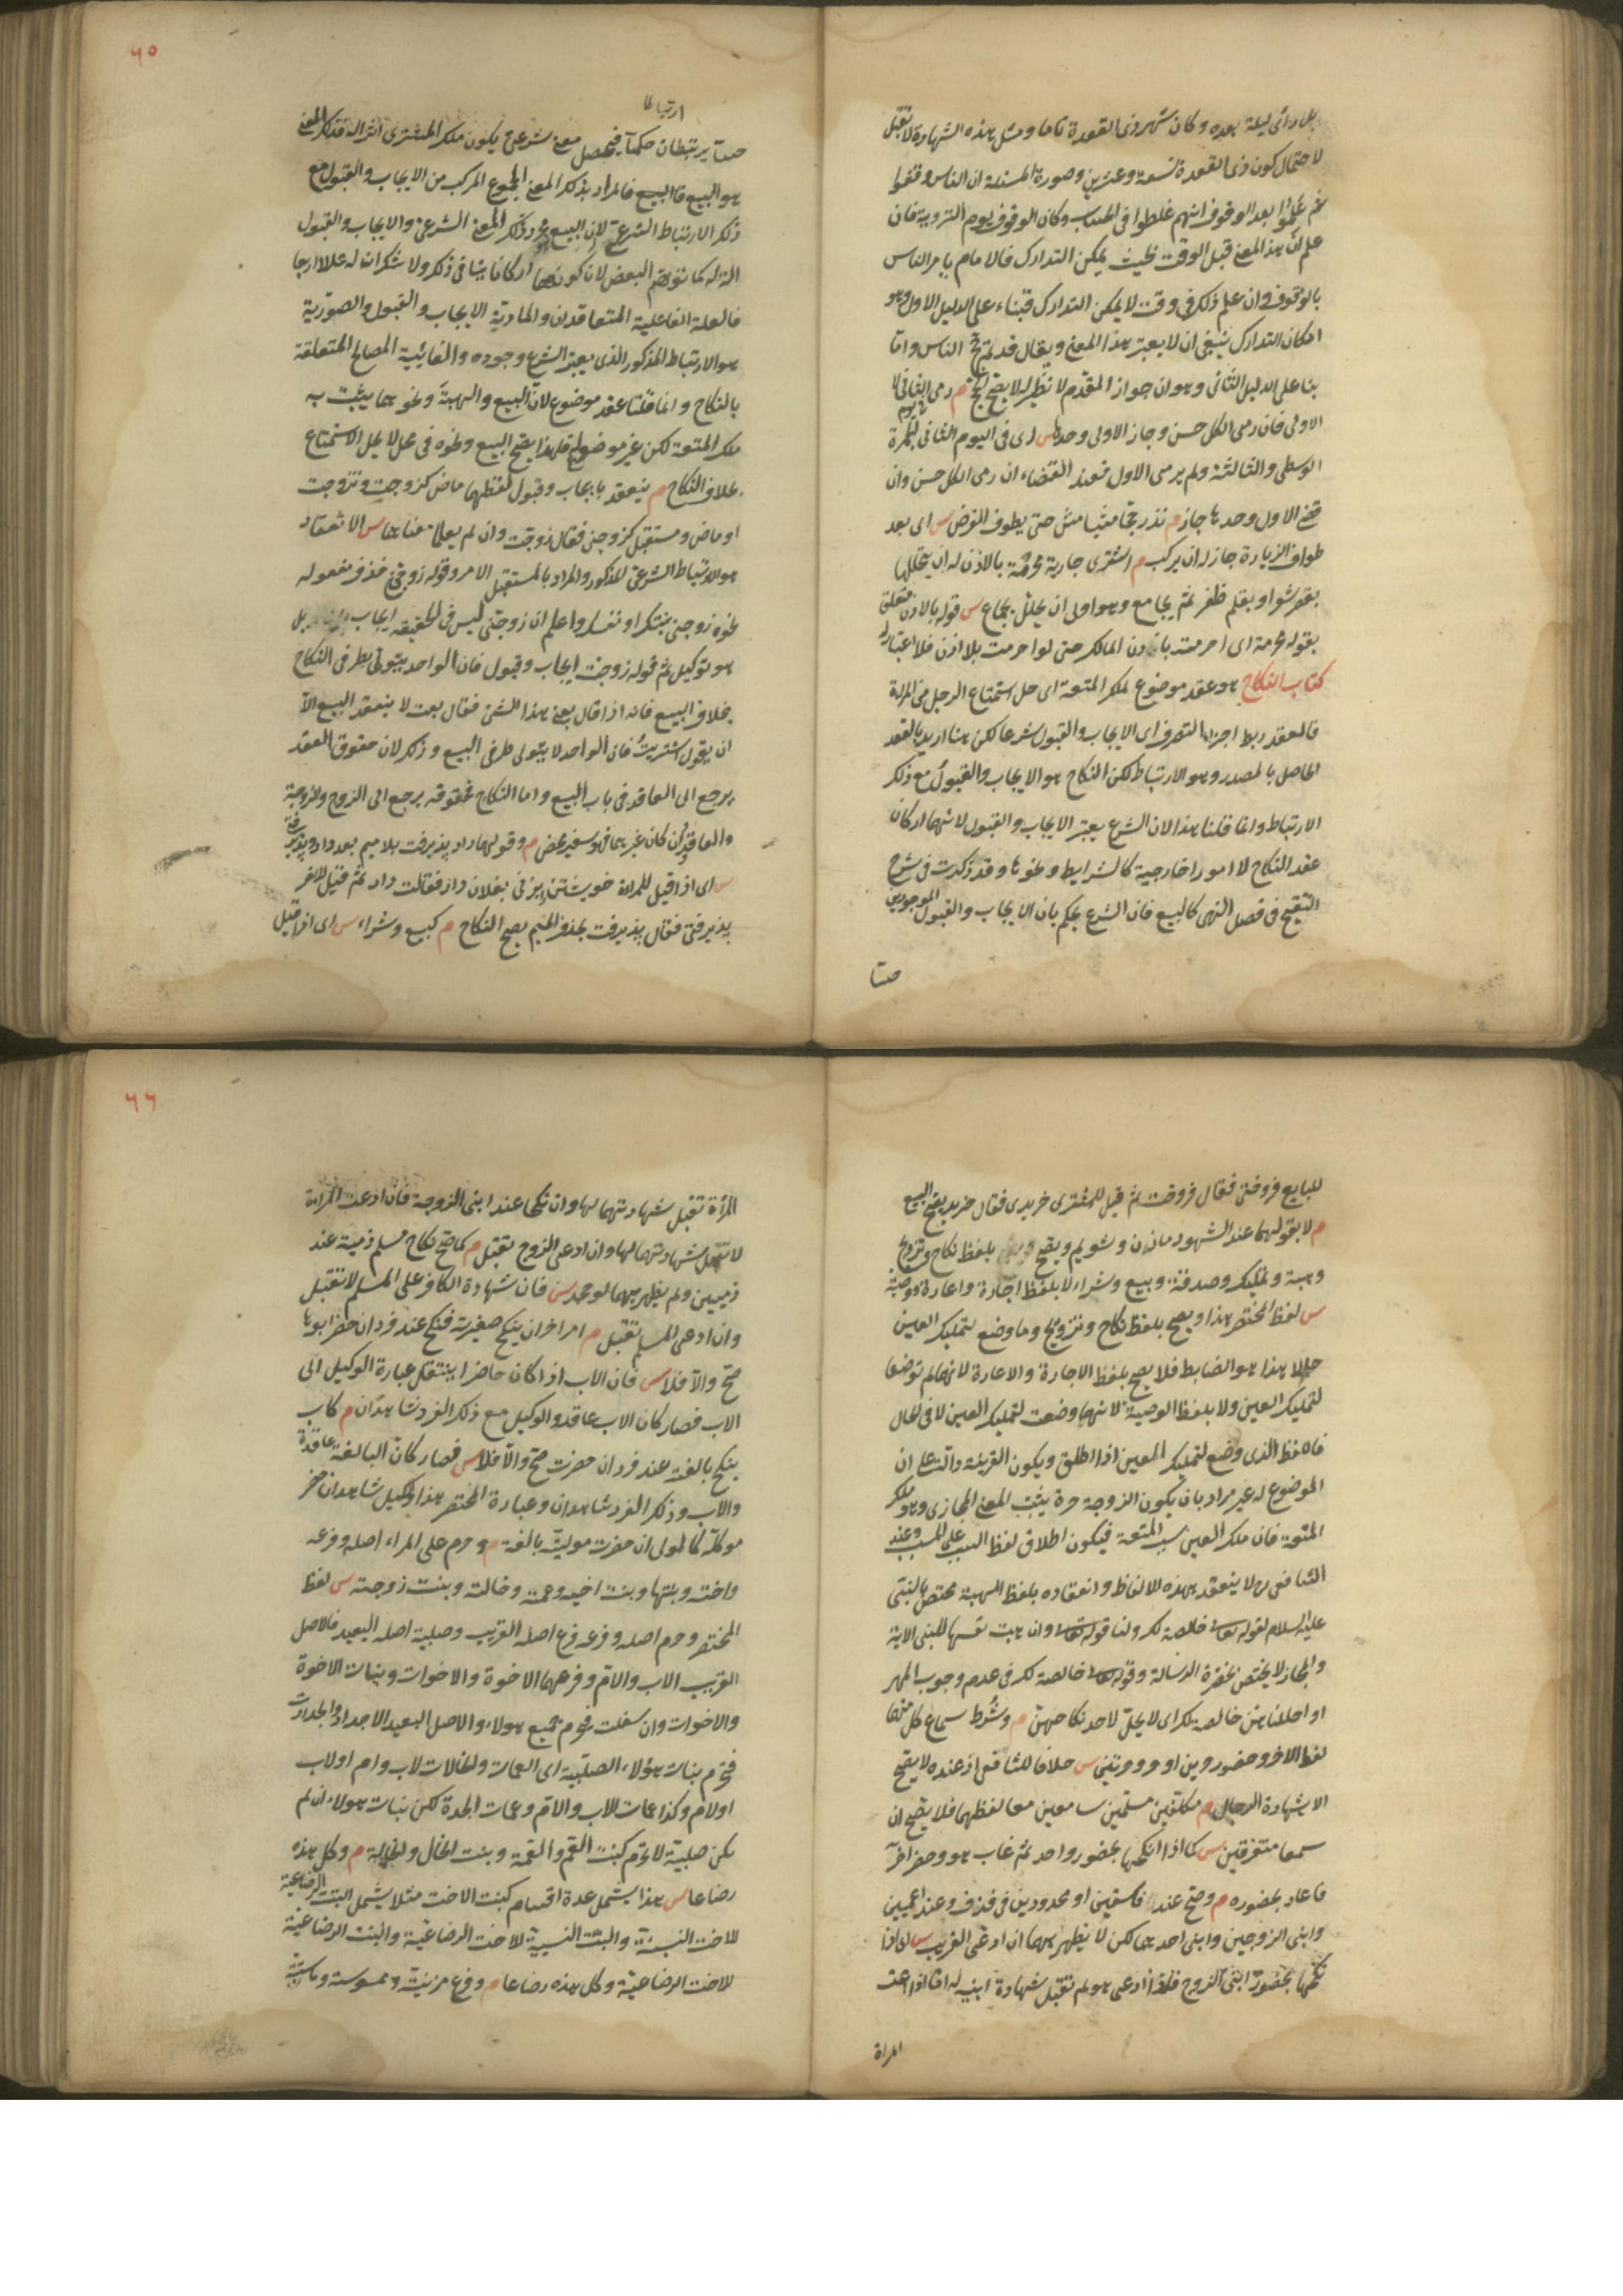 بل رأى ليلة بعده وكان شهر ذي القعدة تاما ومثل هذه الشهادة لا تقبل
لاحتمال كون ذي القعدة تسعة وعشرين وصورة المسئلة ان الناس وقفوا
ثم علموا بعد الوقوف انهم غلطوا في الحساب وكان الوقوف يوم التروية فان
علم ان هذا المعنى قبل الوقت بحيث يمكن التدارك فالامام يامر الناس
بالوقوف وان علم ذلك في وقت لا يمكن التدارك فبناء على الدليل الاول وهو
امكان التدارك ينبغي ان لا يعتبر هذا المعنى ويقال قد تم حج الناس واما
بناء على الدليل الثاني وهو ان جواز المقدم لا نظير له لا يصح الحج م رمى في اليوم الثاني لا
الاولى فان رمى الكل حسن وجاز الاولى وحدها س اى في اليوم الثاني الجمرة
الوسطى والثالثة ولم يرمى الاول فعند القضاء ان رمى الكل حسن وان
قضى الاول وحدها جاز م نذر حجا مشيا مشى حتى يطوف الفرض س اى بعد
طواف الزيارة جاز له ان يركب م اشترى جارية محرمة بالاذن له ان يحللها
بقص شعر او بقلم ظفر ثم يجامع وهو اولى ان يحلل بجماع س قوله بالاذن متعلق
بقوله محرمة اى احرمت باذن المالك حتى لو احرمت بلا اذن فلا اعتبار له
كتاب النكاح هو عقد موضوع لملك المتعة اى حل استمتاع الرجل من المراة
فالعقد ربط اجزاء التصرف اى الايجاب والقبول شرعا لكن هنا اريد بالعقد
الحاصل بالمصدر وهو الارتباط لكن النكاح هو الايجاب والقبول مع ذلك
الارتباط وانما قلنا هذا لان الشرع يعتبر الايجاب والقبول لانهما اركان
عقد النكاح لا امورا خارجية كالشرايط ونحوها وقد ذكرت في شرح
التنقيح في فصل النهى كالبيع فان الشرع يحكم بان الايجاب والقبول الموجودين
حسا
٦٥
ارتباطا
حسا يرتبطان حكما فيحصل معنى شرعي يكون ملك المشترى اثرا له فذلك المعنى
هو البيع فالبيع فالمراد بذلك المعنى المجموع المركب من الايجاب والقبول مع
ذلك الارتباط الشرعي لا ان البيع مجرد ذلك المعنى الشرعي والايجاب والقبول
الة له كما توهم البعض لان كونهما اركانا ينافى ذلك ولا شك ان له عللا اربعا
فالعلة الفاعلية المتعاقدان والمادية الايجاب والقبول والصورية
هو الارتباط المذكور الذي يعتبر الشرع وجوده والغائية المصالح المتعلقة
بالنكاح وانما قلنا عقد موضوع لان البيع والهبة ونحوهما يثبت به
ملك المتعة لكن غير موضوع له فلهذا يصح البيع ونحوه في محل لا يحل الاستمتاع
بخلاف النكاح م ينعقد بايجاب وقبول لفظهما ماض كزوجت وتزوجت
او ماض ومستقبل كزوجني فقال زوجت وان لم يعلما معناهما س الانعقاد
هو الارتباط الشرعي المذكور والمراد بالمستقبل الامر وقوله زوجني حذف مفعوله
نحو زوجني بنتك او نفسك واعلم ان زوجني ليس في الحقيقة ايجابا بل
هو توكيل ثم قوله زوجت ايجاب وقبول فان الواحد يتولى بطرفي النكاح
بخلاف البيع فانه اذا قال بعني هذا الشئ فقال بعت لا ينعقد البيع الا
ان يقول اشتريت فان الواحد لا يتولى طرفي البيع وذلك لان حقوق العقد
يرجع الى العاقد في باب البيع واما النكاح فحقوقه يرجع الى الزوج والزوجة
والعاقد ان كان غيرهما فهو سفير محض م وقولهما داد پذيرفت بلا ميم بعد دادى وپذيرفتى
س اى اذا قيل للمراة خويشتن بزنى بفلان داد فقالت داد ثم قيل للاخر
پذيرفتى فقال پذيرفت بحذف الميم يصح النكاح م كبيع وشراء س اى اذا قيل
للبايع فروختى فقال فروخت ثم قيل للمشترى خريدى فقال خريد يصح البيع
م لا بقولهما عند الشهود ما زن وشويم ويصح بلفظ نكاح وتزويج
وهبة وتمليك وصدقة وبيع وشراء لا بلفظ اجارة واعارة ووصية
س لفظ المختصر هذا ويصح بلفظ نكاح وتزويج وما وضع لتمليك العين
حالا هذا هو الضابط فلا يصح بلفظ الاجارة والاعارة لانهما لم توضعا
لتمليك العين ولا بلفظ الوصية لانها وضعت لتمليك العين لا في الحال
فاللفظ الذي وضع لتمليك العين اذا اطلق ويكون القرينة دالة على ان
الموضوع له غير مراد بان يكون الزوجة حرة يثبت المعنى المجازى وهو ملك
المتعة فان ملك العين سبب المتعة فيكون اطلاق لفظ السبب على المسبب وعند
الشافعى رح لا ينعقد بهذه الالفاظ وانعقاده بلفظ الهبة مختص بالنبى
عليه السلام لقوله تعالى خالصة لك ولنا قوله تعالى وان وهبت نفسها للنبى الاية
والمجاز لا يختص بحضرة الرسالة وقوله تعالى خالصة لك في عدم وجوب المهر
او احللنا هن خالصة لك اى لا يحل لاحد نكاحهن م وشرط سماع كل منهما
لفظ الاخر وحضور حرين او حر وحرتين س خلافا للشافعى اذ عنده لا يصح
الا بشهادة الرجال م مكلفين مسلمين سامعين معا لفظهما فلا يصح ان
سمعا متفرقين س كما اذا انكحها بحضور واحد ثم غاب هو وحضر اخر
فاعاد بحضوره م وصح عند فاسقين او محدودين في قذف وعند اعميين
وابنى الزوجين وابنى احدهما لكن لا يظهر بهما ان ادعى القريب س اى اذا
نكحها بحضور ابنى الزوج فلو ادعى هو لم تقبل شهادة ابنيه له اما اذا ادعت
المراة
٦٦
المراة تقبل شهادتهما لها وان نكحا عند ابنى الزوجة فان ادعت المراة
لا تقبل شهادتهما لها وان ادعى الزوج يقبل م كما صح نكاح مسلم ذمية عند
ذميين ولم يظهر بهما لو جحد س فان شهادة الكافر على المسلم لا تقبل
وان ادعى المسلم تقبل م امر اخر ان ينكح صغيرته فنكح عند فرد ان حضر ابوها
صح والا فلا س فان الاب اذا كان حاضرا ينتقل عبارة الوكيل الى
الاب فصار كان الاب عاقد والوكيل مع ذلك الفرد شاهدان م كاب
ينكح بالغته عند فرد ان حضرت صح والا فلا س فصار كان البالغة عاقدة
والاب وذلك الفرد شاهدان وعبارة المختصر هذا والوكيل شاهد ان حضر
موكله كالولى ان حضرت موليته بالغة م وحرم على المراء اصله وفرعه
واخته وبنتها وبنت اخيه وعمته وخالته وبنت زوجته س لفظ
المختصر وحرم اصله وفرعه فرع اصله القريب وصلبية اصله البعيد فالاصل
القريب الاب والام وفرعهما الاخوة والاخوات وبنات الاخوة
والاخوات وان سفلت فحرم جميع هولاء والاصل البعيد الاجداد والجدات
فحرم بنات هؤلاء الصلبية اى العمات والخالات لاب وام او لاب
او لام وكذا عمات الاب والام وعمات الجدة لكن بنات هولاء ان لم
يكن صلبية لا تحرم كبنت العم والعمة وبنت الخال والخالة م وكل هذه
رضاعا س هذا يشمل عدة اقسام كبنت الاخت مثلا يشمل البنت الرضاعية
للاخت النسبية والبنت النسبية للاخت الرضاعية والبنت الرضاعية
للاخت الرضاعية وكل هذه رضاعا م وفرع مزنيته وممسوسته وماسته